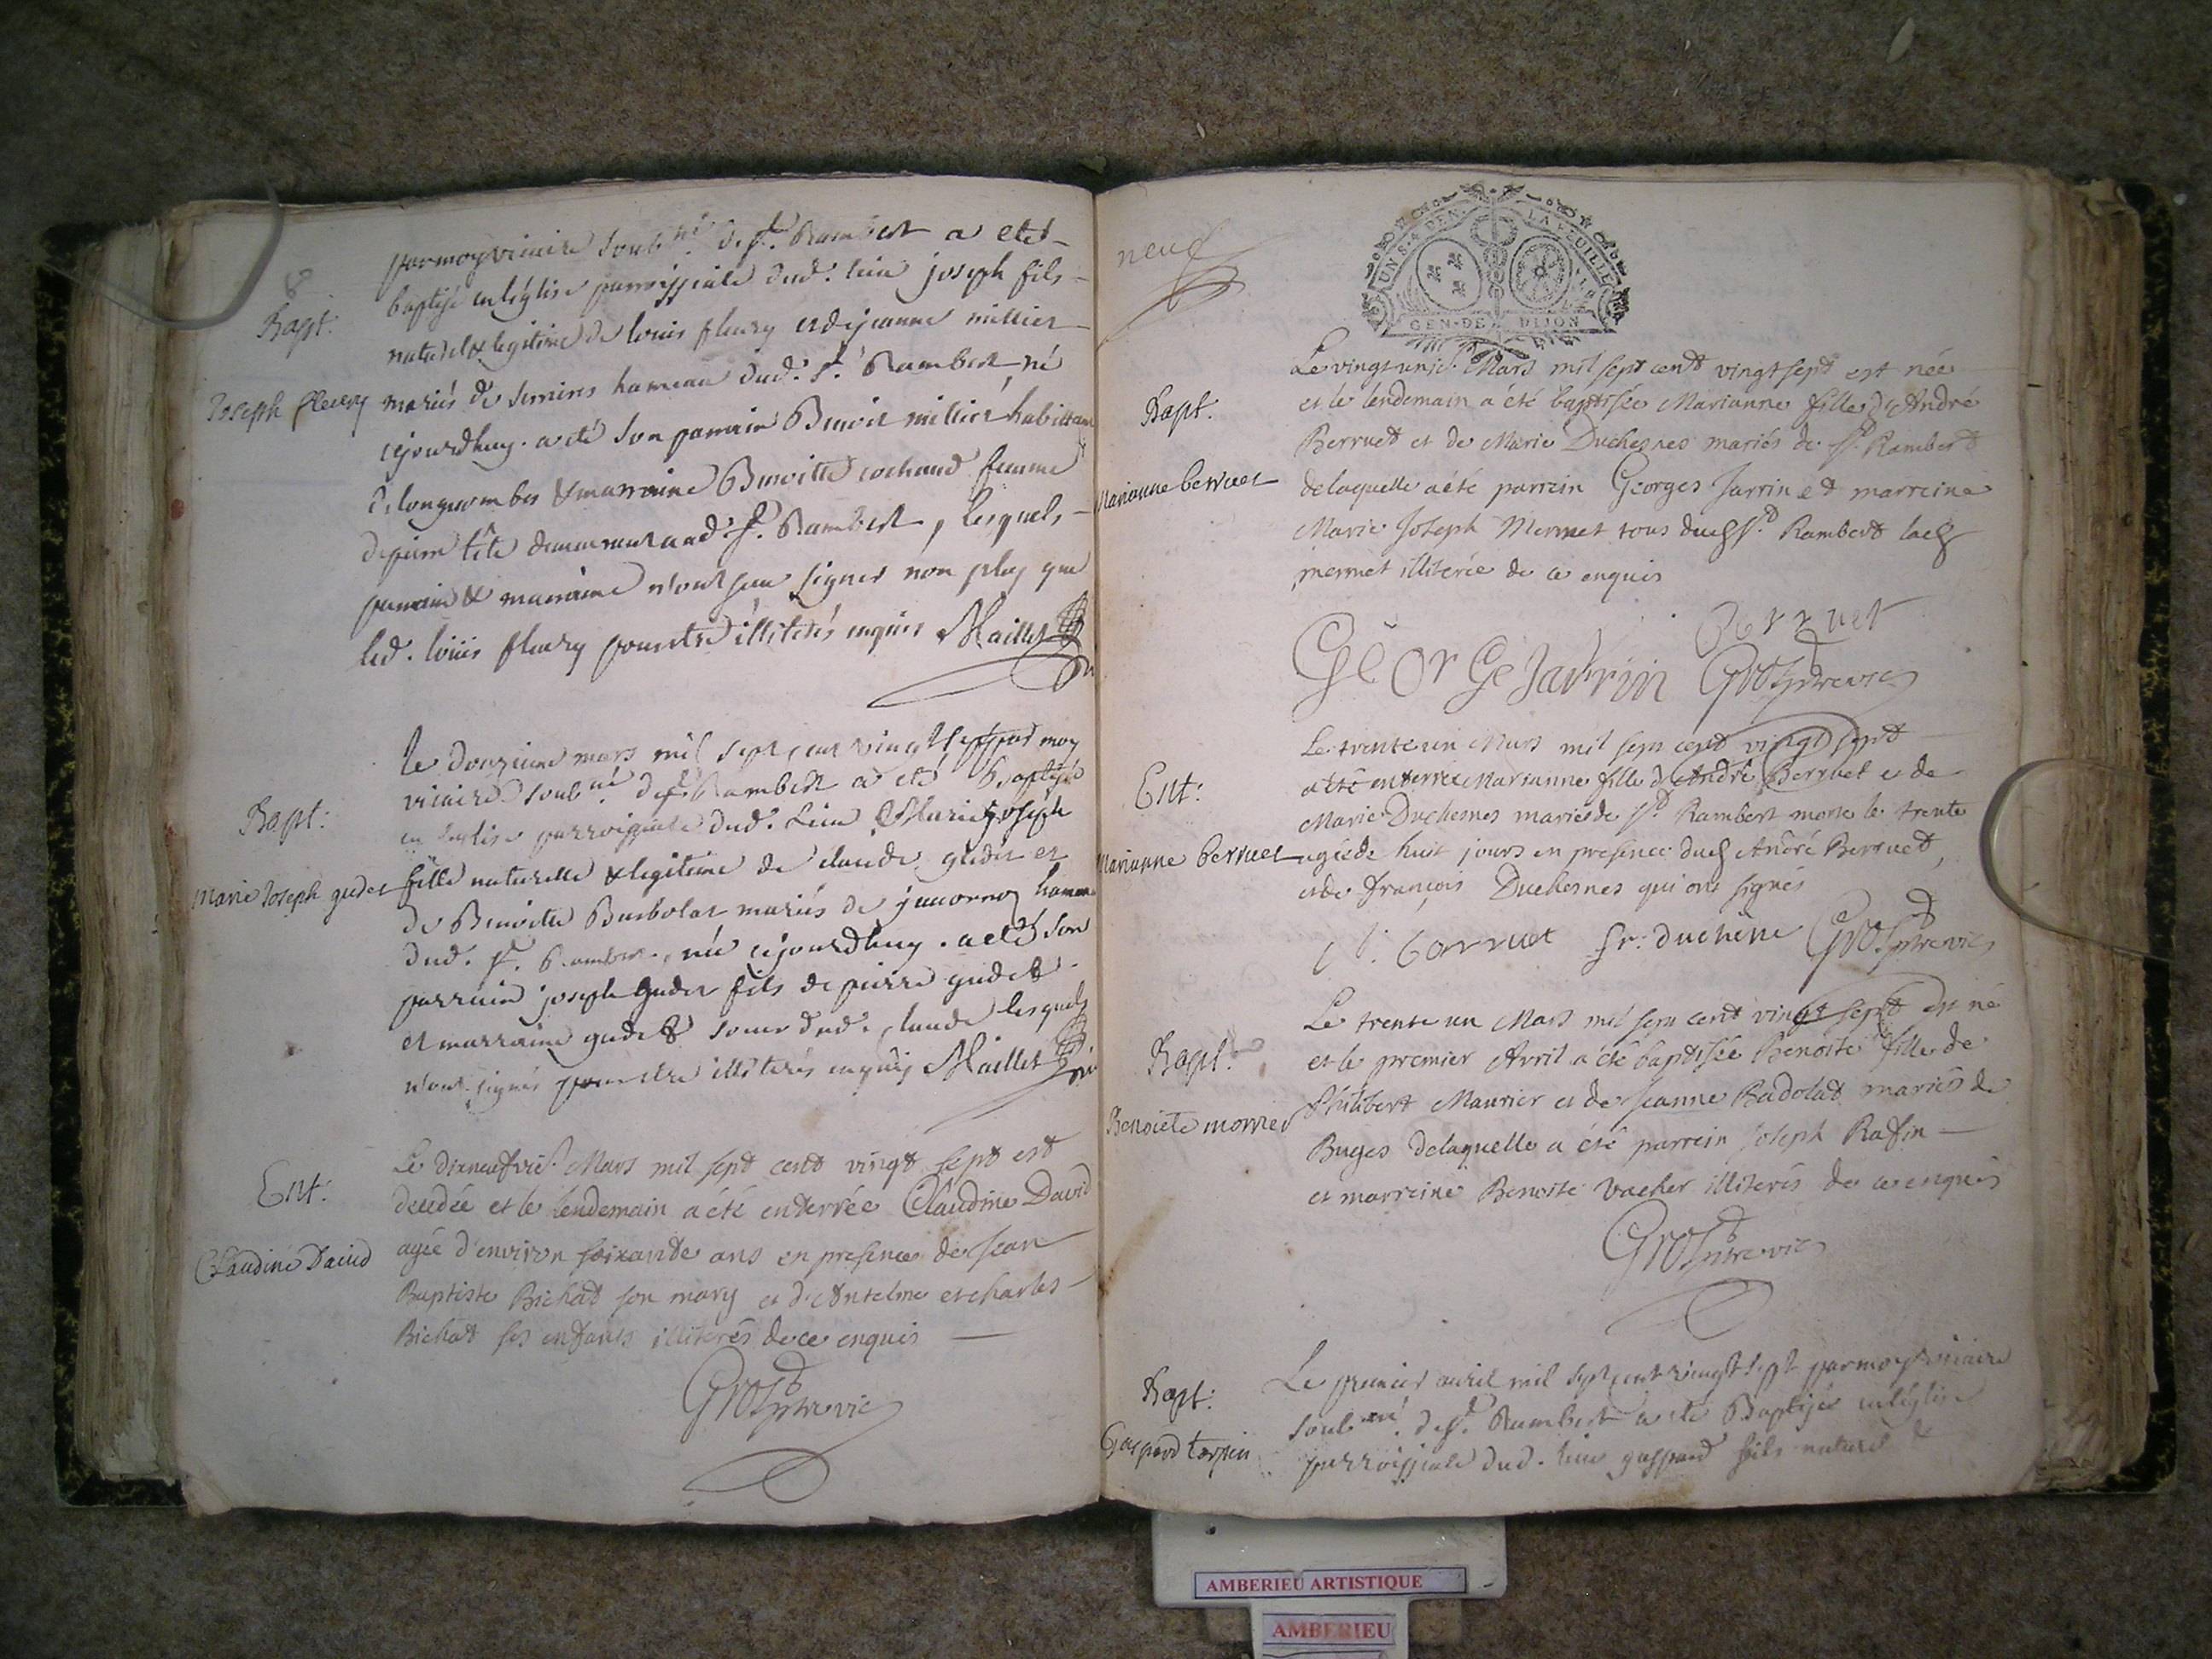 par moy vicaire soubné de St. Rambert a eté
baptisé en l'église parroissiale dud. lieu joseph fils
naturel & legitime de louis fleury et de jeanne millier
mariés de hameau dud. St. Rambert né
cejourdhuy. a été son parrain Benoit millier habittant
de longecombes & marraine Benoitte cochaud femme
de pierre tête demeurant aud. St. Rambert, lesquels
parrain & marraine n'ont sceu signer non plus que
led. louis fleury pour etre illiterés enquis Maillet
Bapt:
Joseph fleury
le douzieme mars mil sept cent vingt sept par moy
vicaire soubné de St Rambert a eté baptisé
en l'eglise parroissiale dud. Lieu Marie joseph
fille naturelle & legitime de claude gudet et
de Benoitte Barbolat mariés de hameau
dud. St. Rambert, née cejourdhuy. a eté son
parrain joseph gudet fils de pierre gudet
et marraine gudet soeur dud. claude lesquels
n'ont signés pour etre illiterés enquis Maillet
Bapt:
Marie Joseph gudet
Le dixneufvie. Mars mil sept cent vingt sept est
decedée et le lendemain a été enterrée Claudine David
agée d'environ soixante ans en presence de Jean
Baptiste Bichat son mary et d'Antelme et charles
Bichat ses enfants illiterés de ce enquis
Ent:
Claudine David
neuf
UN S. 4 DEN. LA FEUILLE
GEN. DE DIJON
Le vingtunie. Mars mil sept cent vingt sept est née
et le lendemain a été baptisée Marianne fille d'André
Berruet et de Marie Duchesnes mariés de St. Rambert
delaquelle a été parrein Georges Jarrin et marreine
Marie Joseph Mermet tous dud St. Rambert lad
mermet illiterée de ce enquis
Bapt:
Marianne berruet
Berruet
George Jarrin
Le trente un Mars mil sept cent vingt sept
a été enterrée Marianne fille d'André Berruet et de
Marie Duchesnes mariés de St Rambert morte le trente
agée de huit jours en presence dud André Berruet,
et de François Duchesnes qui ont signés
Ent:
Marianne berruet
berruet fr: duchene
Le trente un Mars mil sept cent vingt sept est né
et le premier Avril a été baptisée Benoite fille de
Philibert Maurier et de Jeanne Badolat mariés de
Buges delaquelle a été parrein Joseph Rafin
et marreine Benoite Vacher illiterés de ce enquis
Bapt:
Benoiete morrier
Le premier avril mil sept cent vingt sept par moy vicaire
soubné. de St. Rambert a eté Baptisé en l'église
parroissiale dud. lieu gaspard fils naturel &
Bapt:
Gaspard tarpin
AMBERIEU ARTISTIQUE
AMBERIEU